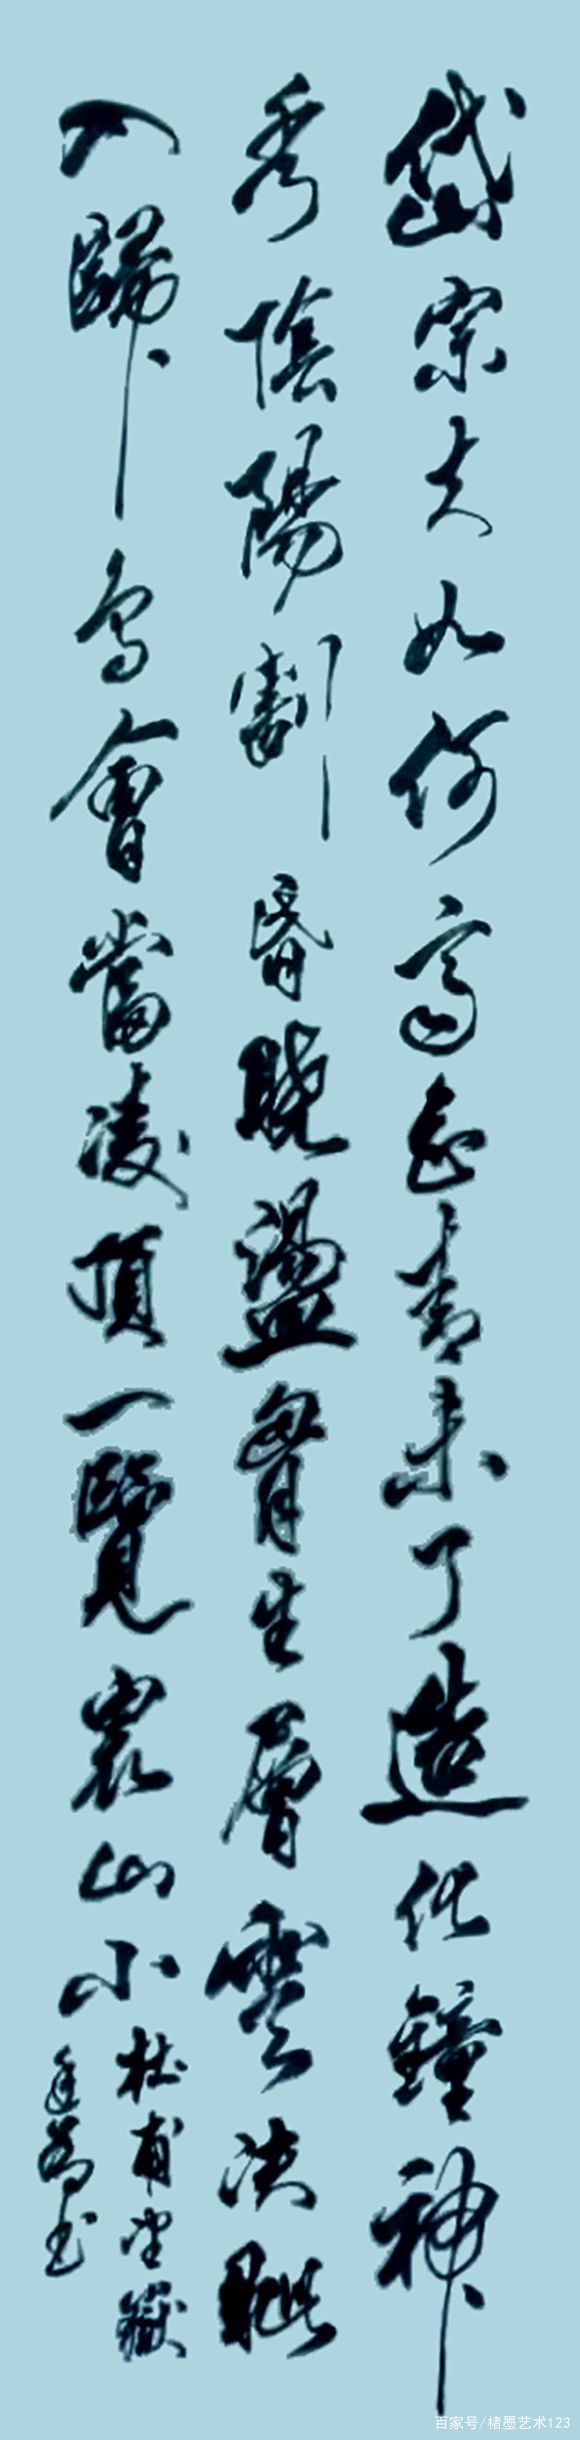 岱宗夫如何齊魯青未了造化鐘神
秀陰陽割昏曉盪胷生層雲決眦
入歸鳥會當凌頂一覽衆山小
杜甫望嶽
书
百家号/楮墨艺术123